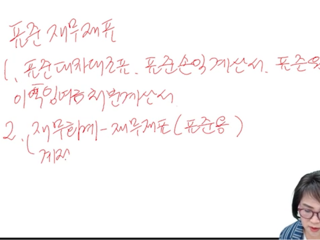 표준재무제표
1. 표준대차대조표. 표준손익계산서. 표준원
이익잉여금처분계산서
2. 재무회계 - 재무제표 (표준용)